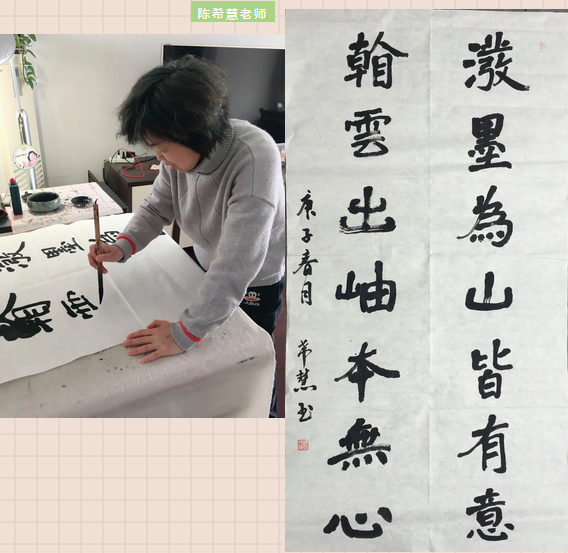 陈希慧老师
潑墨為山皆有意
看雲出岫本無心
庚子春月 希慧书